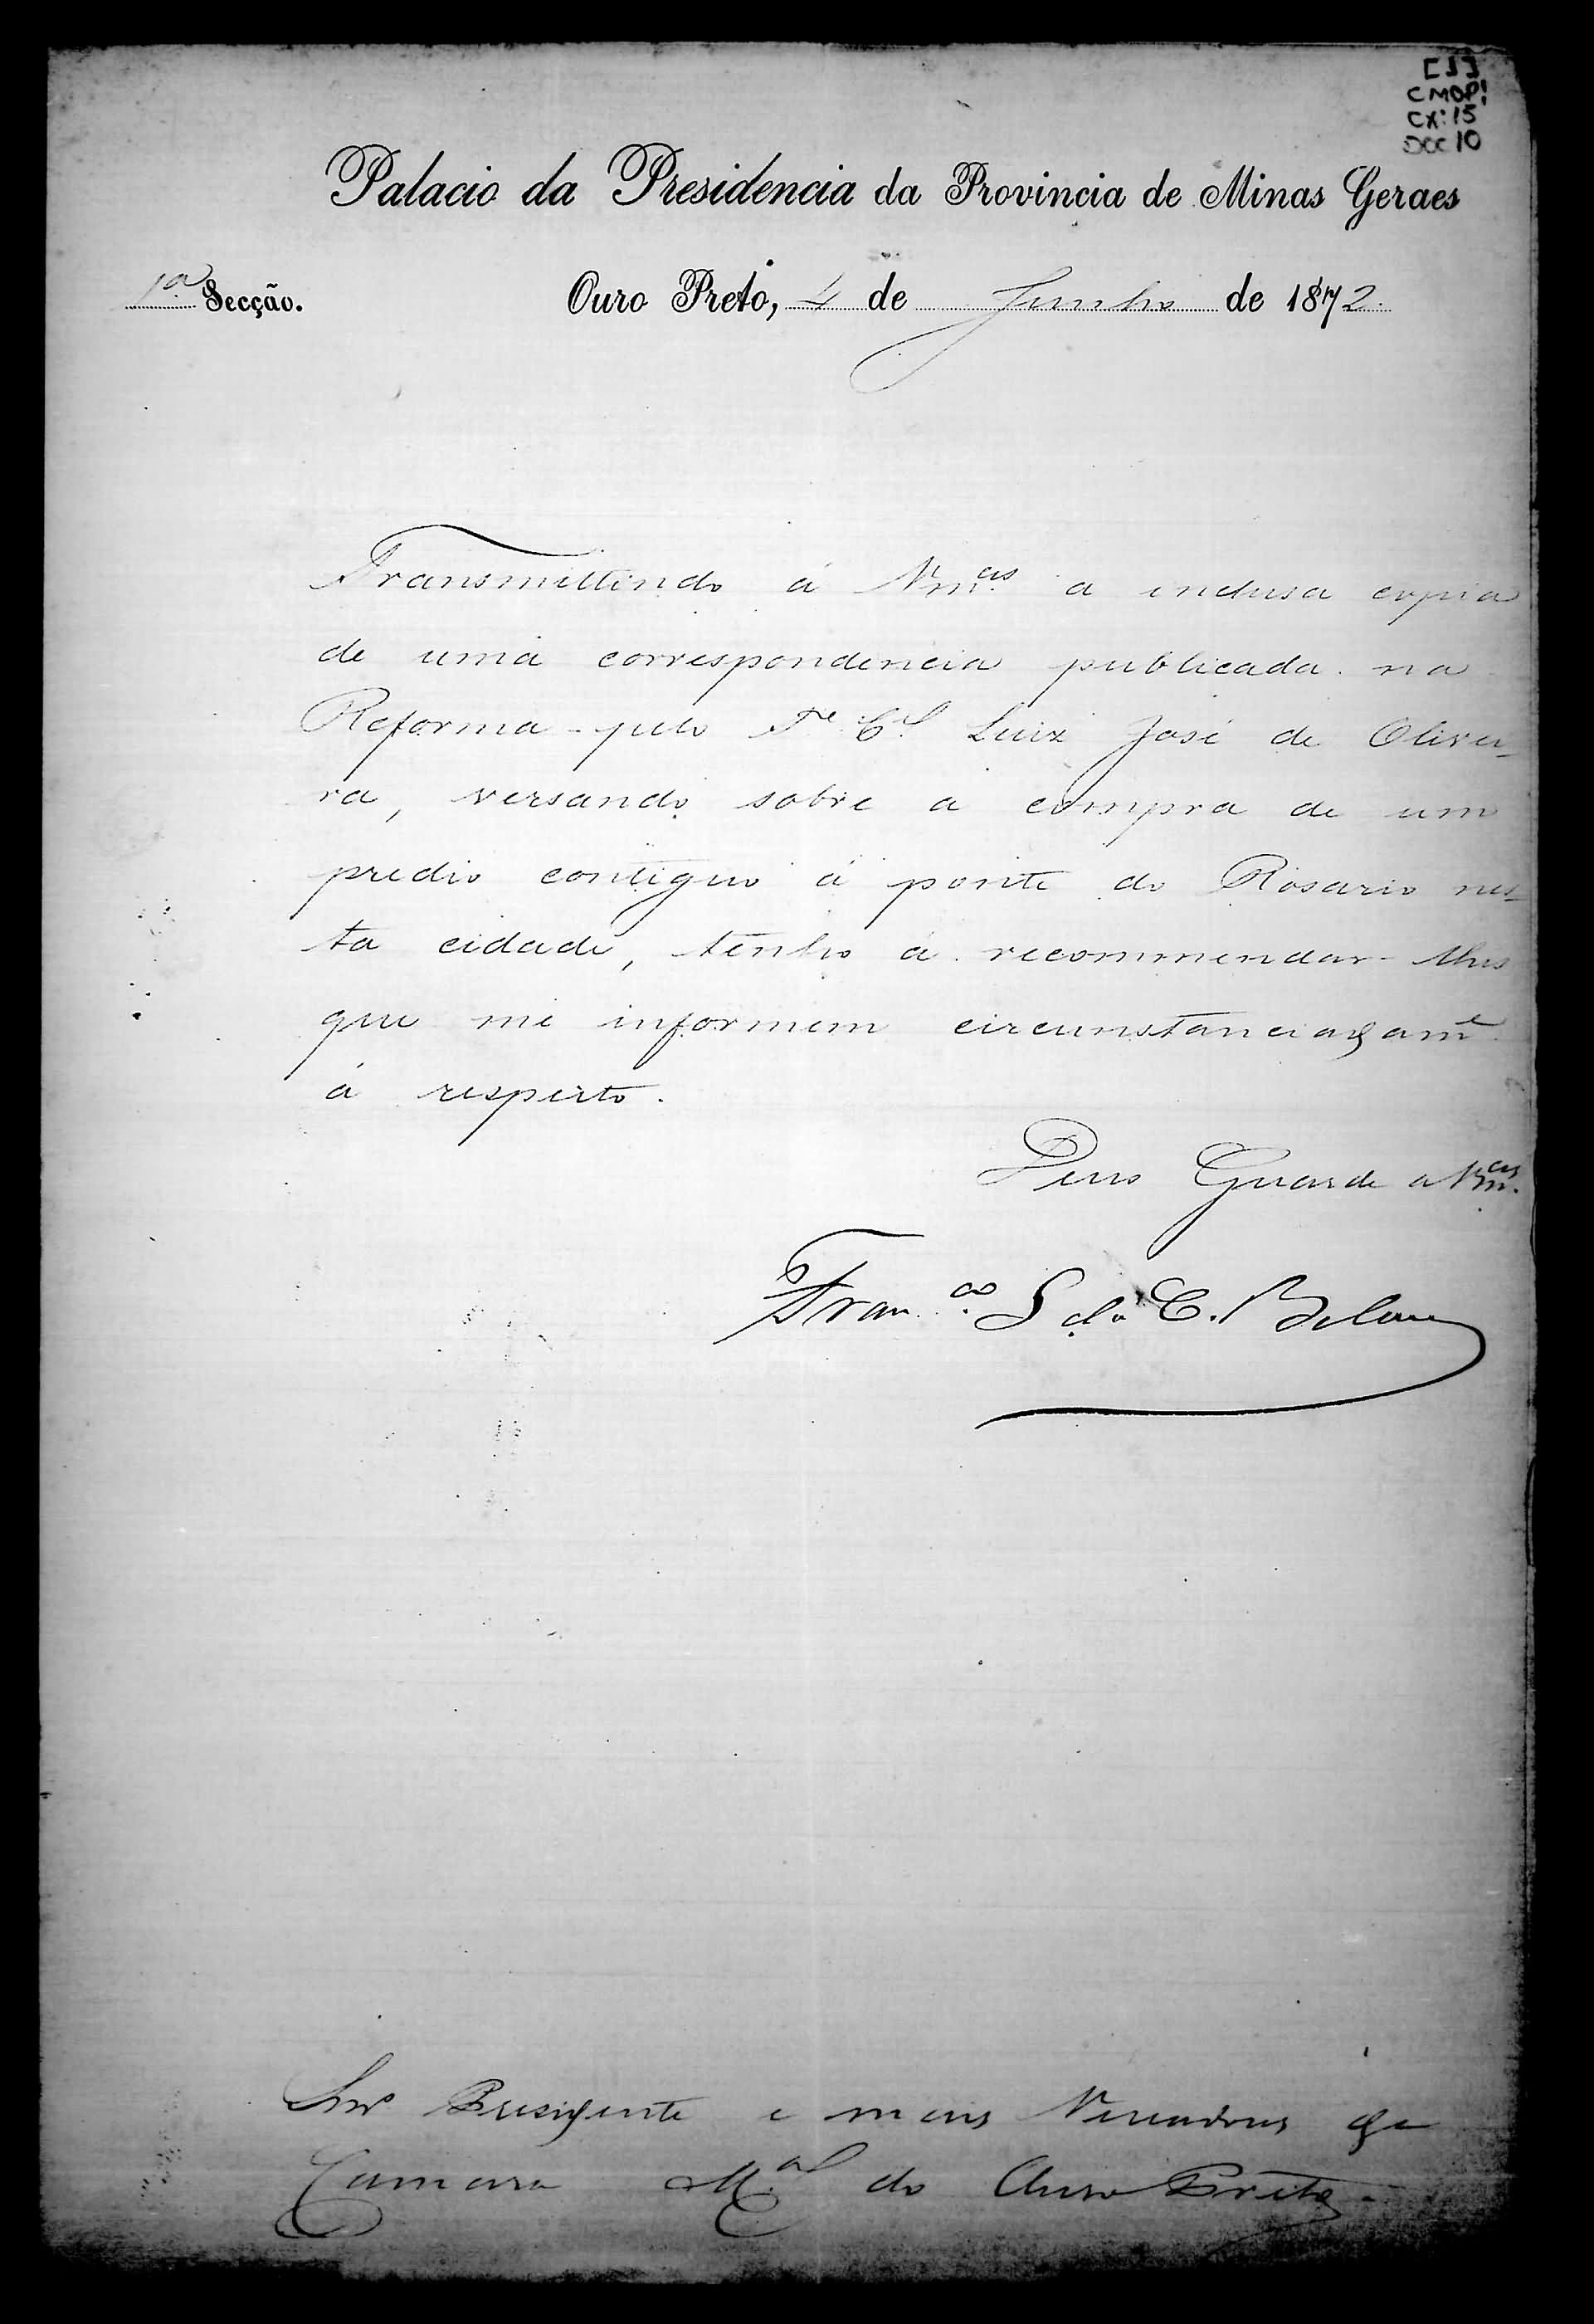 [1]
CMOP!
CX: 15
DOC 10
Palacio da Presidencia da Provincia de Minas Geraes
1ª Secção.
Ouro Preto, 4 de Junho de 1872.
Transmittindo á Vm.cês a inclusa copia
de uma correspondencia publicada na
Reforma - pelo Te Cel Luiz José de Olivei-
ra, versando sobre a compra de um
predio contiguo á ponte do Rosario nes-
ta cidade, tenho a recommendar-lhes
que me informem circunstanciadame
á respeito.
Deus Guarde a Vm.cês
Fran.co L da C. Belem
Snr Presidente e mais Vereadores da
Camara M.al do Ouro Preto -